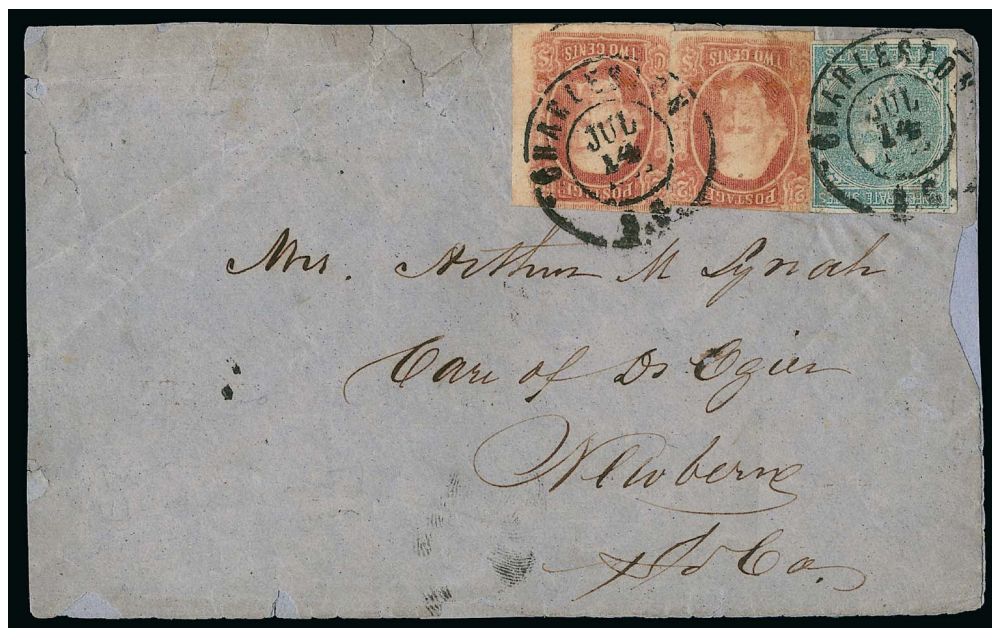 TWO CENTS
TWO CENTS
POSTAGE
POSTAGE
CHARLESTON
JUL
14
S.C.
CHARLESTON
JUL
14
S.C.
Mrs. Arthur M Lynah
Care of Dr Ogier
Newbern
So Ca.